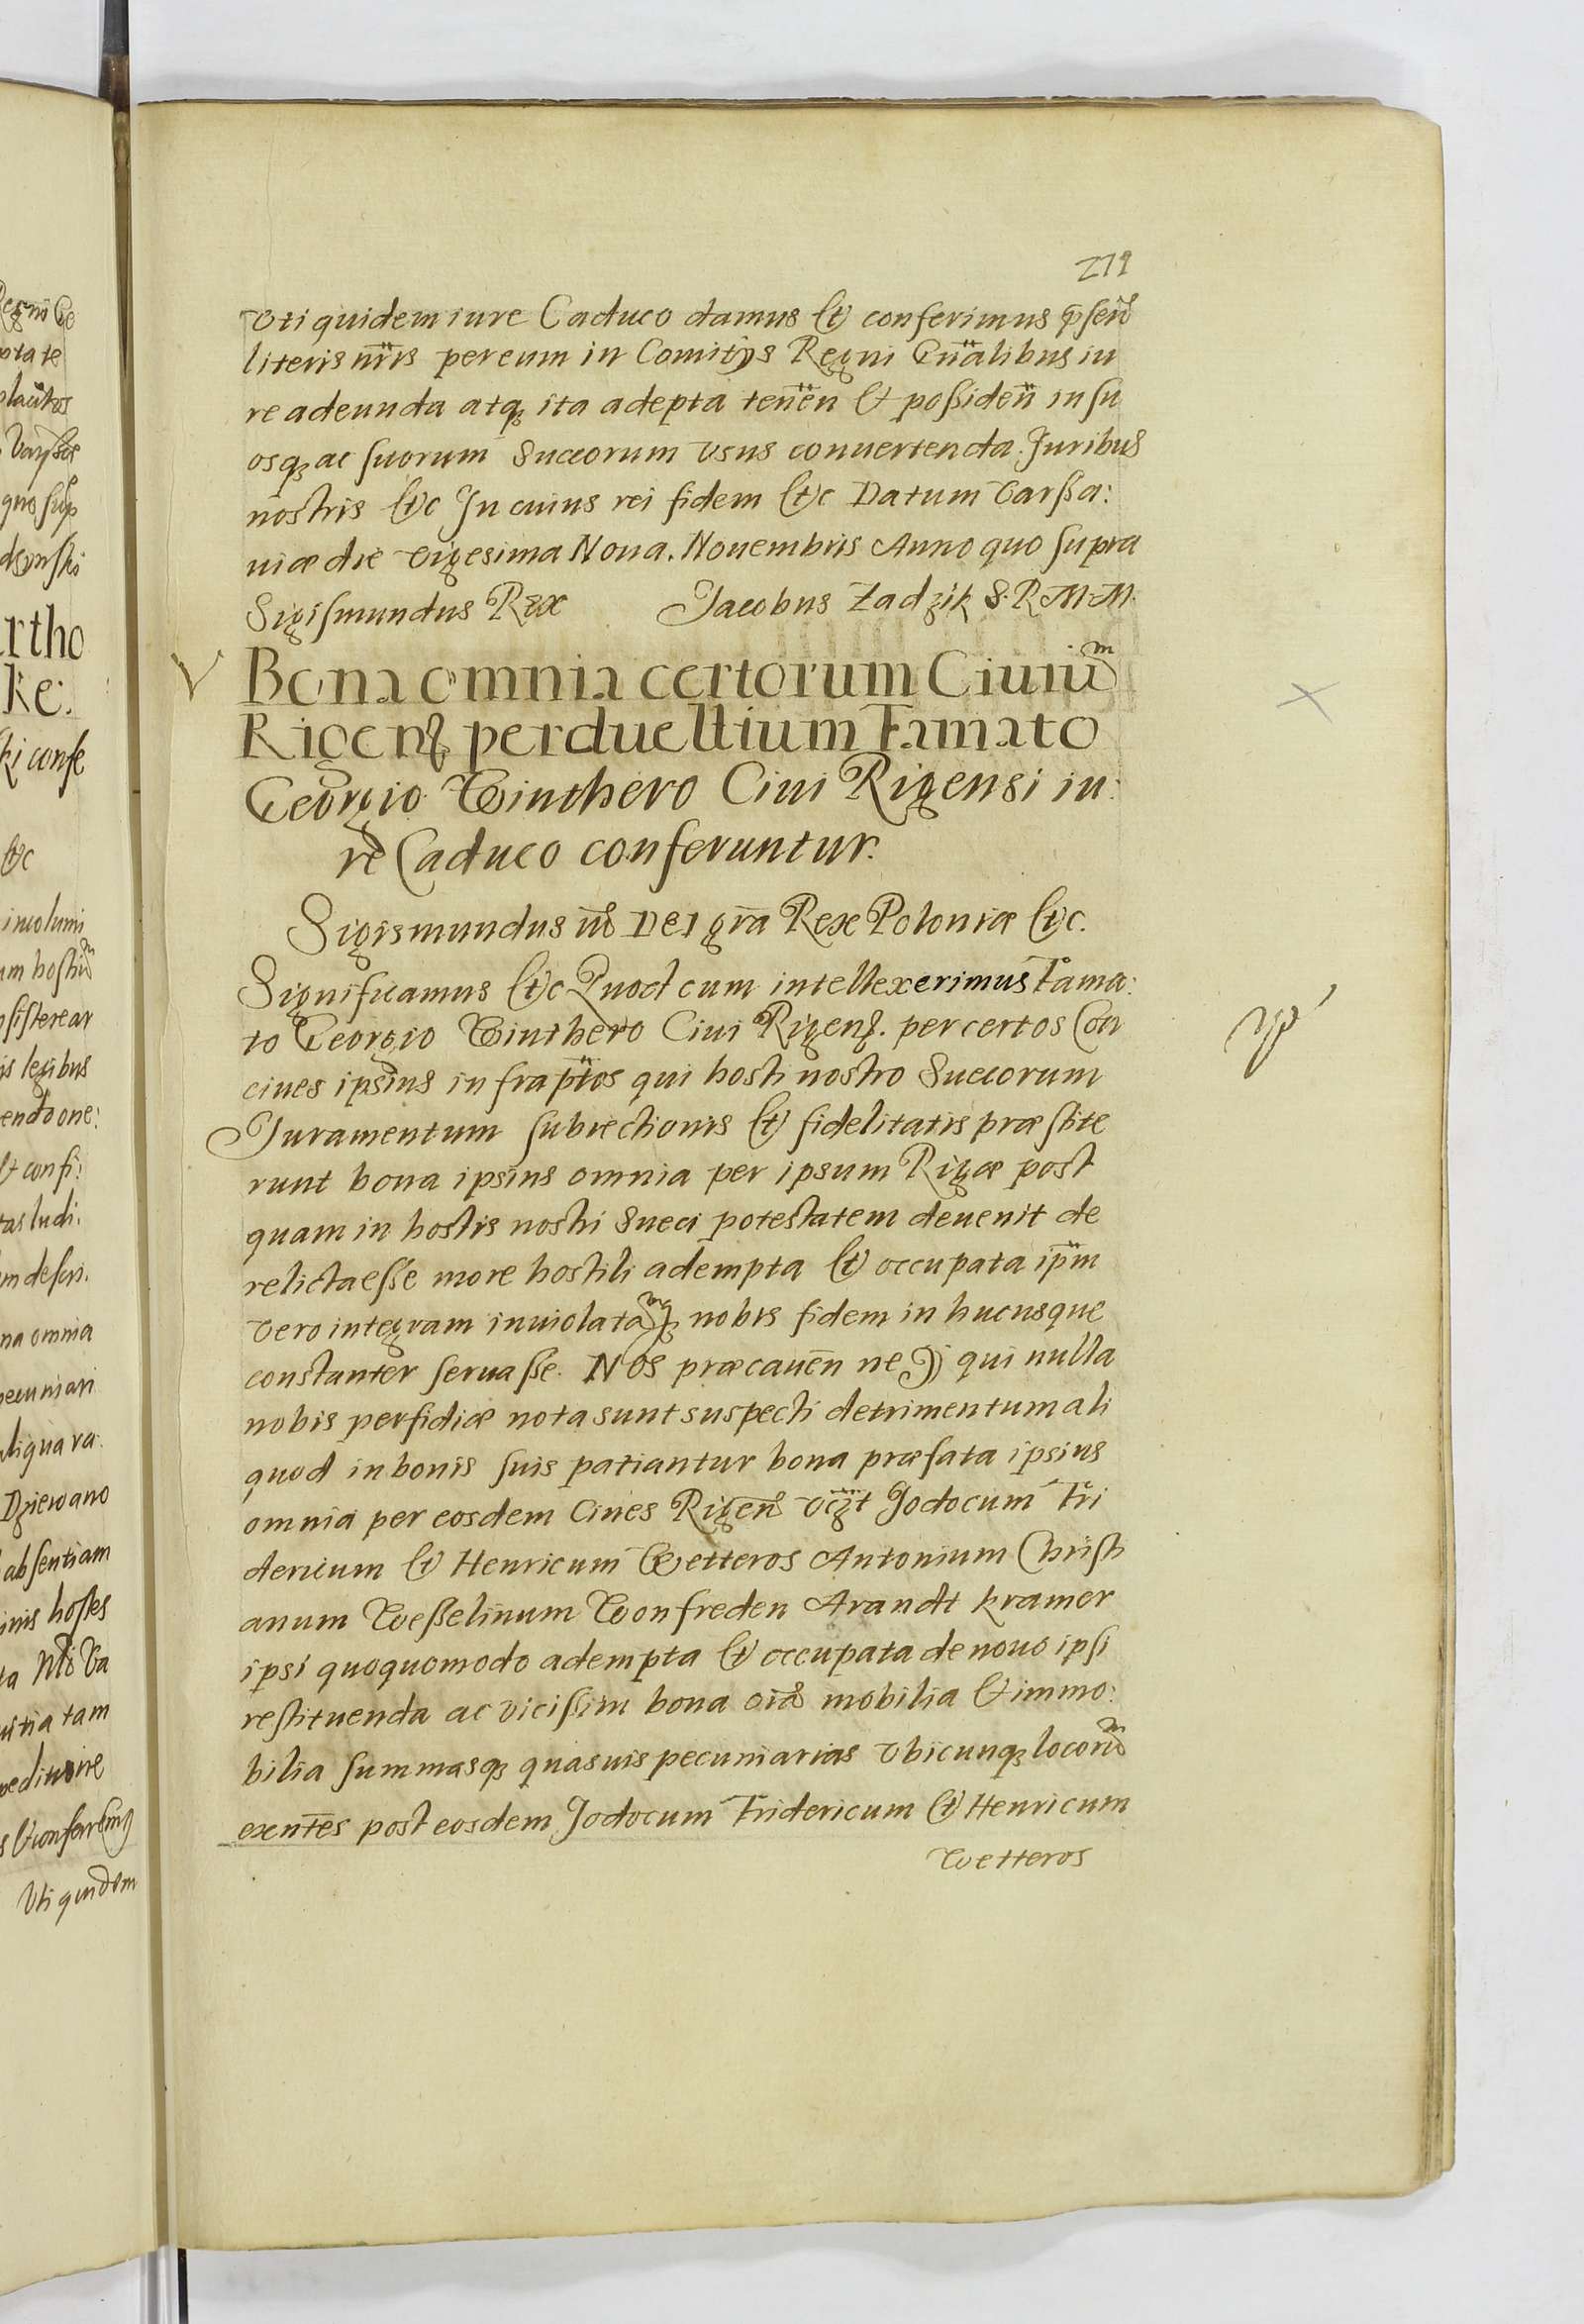 219
Vti quidem iure Caduco damus & conferimus p̃sen̄
literis nr̄is per eum in Comitijs Regni Gn̄alibus iu
re adeunda atq; ita adepta tenēn & possiden̄ in su
osq; ac suorum Succorum vsus conuertenda. Juribus
nostris &c In cuius rei fidem &c Datum Varssa:
uiæ die vigesima Noua. Nouembris Anno quo supra
Sigismundus Rex Jacobus Zadzik S. R. M. M.
Bona omnia certorum Ciuiū
Rigens perduellium Famato
Georgio Winthero Ciui Rigensi iu:
re Caduco conferuntur.
Sigismundus iij Dei gr̄a Rex Poloniæ &c.
Significamus &c Quod cum intellexerimus Fama:
to Georgio Winthero Ciui Rigens. per certos Con
ciues ipsius infrap̄tos qui hosti nostro Suecorum
Juramentum subiectionis & fidelitatis præstite
runt bona ipsius omnia per ipsum Rigæ post
quam in hostis nostri Sueci potestatem deuenit de
relicta esse more hostili adempta & occupata ip̄m
vero integram inuiolatāq; nobis fidem in hucusque
constanter seruasse. Nos præcauēn ne ij qui nulla
nobis perfidiæ nota sunt suspecti detrimentum ali
quod in bonis suis patiantur bona præfata ipsius
omnia per eosdem Ciues Rigen̄ vc̄zt Jodocum Fri
dericum & Henricum Wetteros Antonium Christi
anum Wesselinum Wonfreden Arandt kramer
ipsi quoquomodo adempta & occupata de nouo ipsi
restituenda ac vicissim bona oīa mobilia & immo:
bilia summasq; quasuis pecuniarias vbicunq; locorū
exn̄tes post eosdem Jodocum Fridericum & Henricum
Wetteros